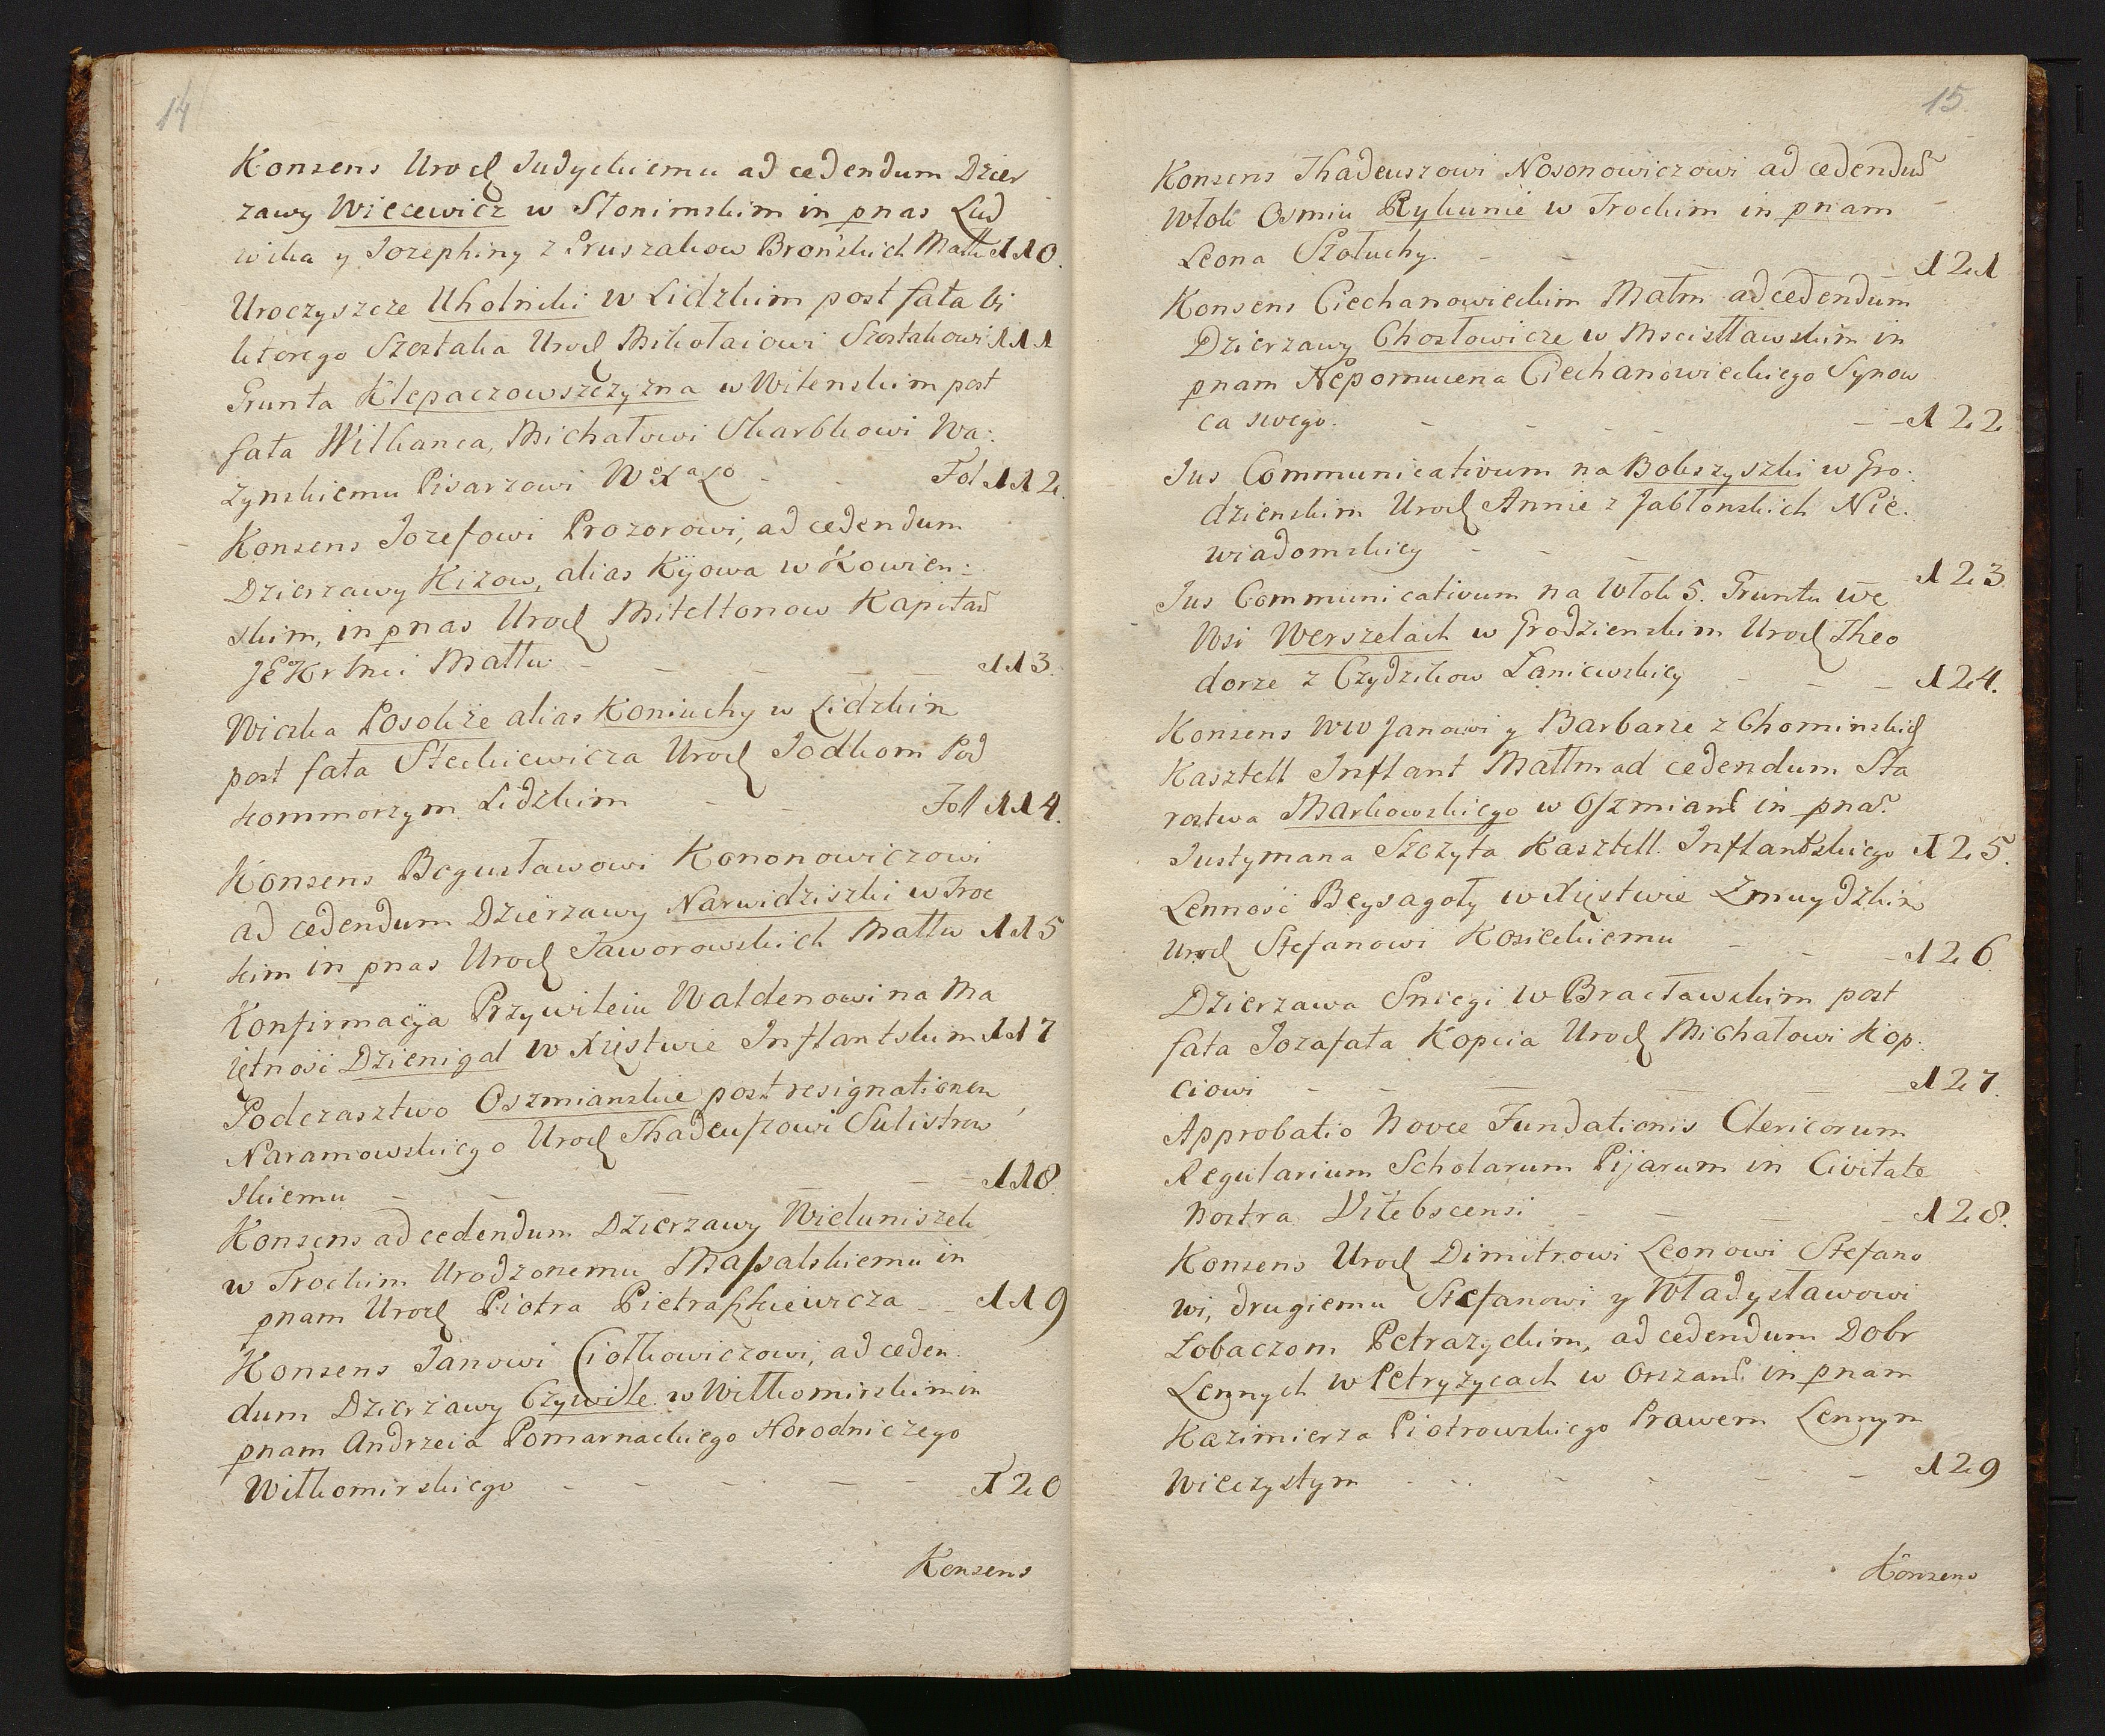 14
Konsens Urodz Judyckiemu ad cedendum Dzier
zawy Wiecewicz w Słonimskim in pnas Lud
wika y Jozephiny z Pruszakow Brońskich Małk 110.
Uroczyszcze Uholniki w Lidzkim post fata bi
kterego Szostaka Urodz Mikołaiowi Szostakowi 111
Grunta Klepaczowszczyzna w Wilenskim post
fata Wilkanca, Michałowi Skarbkowi Wa:
zynskiemu Pisarzowi W Xa Lo - - Fol 112.
Konsens Jozefowi Prozorowi, ad cedendum
Dzierzawy Kizow, alias Kijowa w Kowien:
skim, in pnas Urodz Miteltonow Kapitań
JEKrMci Małłw - - - - 113.
Wioska Posolcze alias Koniuchy w Lidzkim
post fata Steckiewicza Urodz Jodkom Pod
kommorzym Lidzkim - - Fol 114.
Konsens Bogusławowi Kononowiczowi
ad cedendum Dzierzawy Narwidziszki w Troc
kim in pnas Urodz Jaworowskich Małłw 115
Konfirmacja Przywileiu Waldenowi na Ma
iętność Dzienigal w Xięstwie Inflantskim 117
Podczasztwo Oszmianskie post resignationem
Naramowskiego Urodz Thadeuszowi Sulistrow
skiemu - - - - - 118.
Konsens ad cedendum Dzierzawy Wieluniszek
w Trockim Urodzonemu Massalskiemu in
pnam Urodz Piotra Pietraszkiewicza - - 119
Konsens Janowi Ciotkowiczowi, ad ceden.
dum Dzierzawy Czywile w Wilkomirskim in
pnam Andrzeia Pomarnackiego Horodniczego
Wilkomirskiego - - - - - 120
Konsens
15
Konsens Thadeuszowi Nosonowiczowi ad cedendum
Włok Osmiu Rykunie w Trockim in pnam
Leona Szołuchy. - - - - 121
Konsens Ciechanowieckim Małm ad cedendum
Dzierzawy Chosłowicze w Mscisłławskim in
pnam Nepomucena Ciechanowieckiego Synow
ca swego. - - - - 122
Jus Communicativum na Bokszyszki w Gro:
dzienskim Urodz Annie z Jabłonskich Nie.
wiadomskiey - - - - 123
Jus Communicativum na Włok 5. Gruntu we
Wsi Werszelach w Grodzienskim Urodz Theo
dorze z Czydzikow Laniewskiey - - - 124.
Konsens WW Janowi y Barbarze z Chominskich
Kasztell Inflant Małłm ad cedendum Sta
rostwa Markowskiego w Oszmiań in pnaś
Justymana Szczyta Kasztell. Inflantskiego 125.
Lenność Beysagoły w Xięstwie Zmuydzkim
Urodz Stefanowi Kosieckiemu - - - 126.
Dzierzawa Sniegi w Bracławskim post
fata Jozafata Kopcia Urodz Michałowi Kop.
ciowi - - - - - 127.
Approbatio Novæ Fundationis Clericorum
Regularium Scholarum Pijarum in Civitate
Nostra Vitebscensi - - - - 128.
Konsens Urodz Dimitrowi Leonowi Stefano
wi, drugiemu Stefanowi y Władysławowi
Łobaczom Petrazyckim, ad cedendum Dobr
Lennych w Petryzycach w Orszań. in pnam
Kazimierza Piotrowskiego Prawem Lennym
Wieczystym - - - - - 129
Konsens